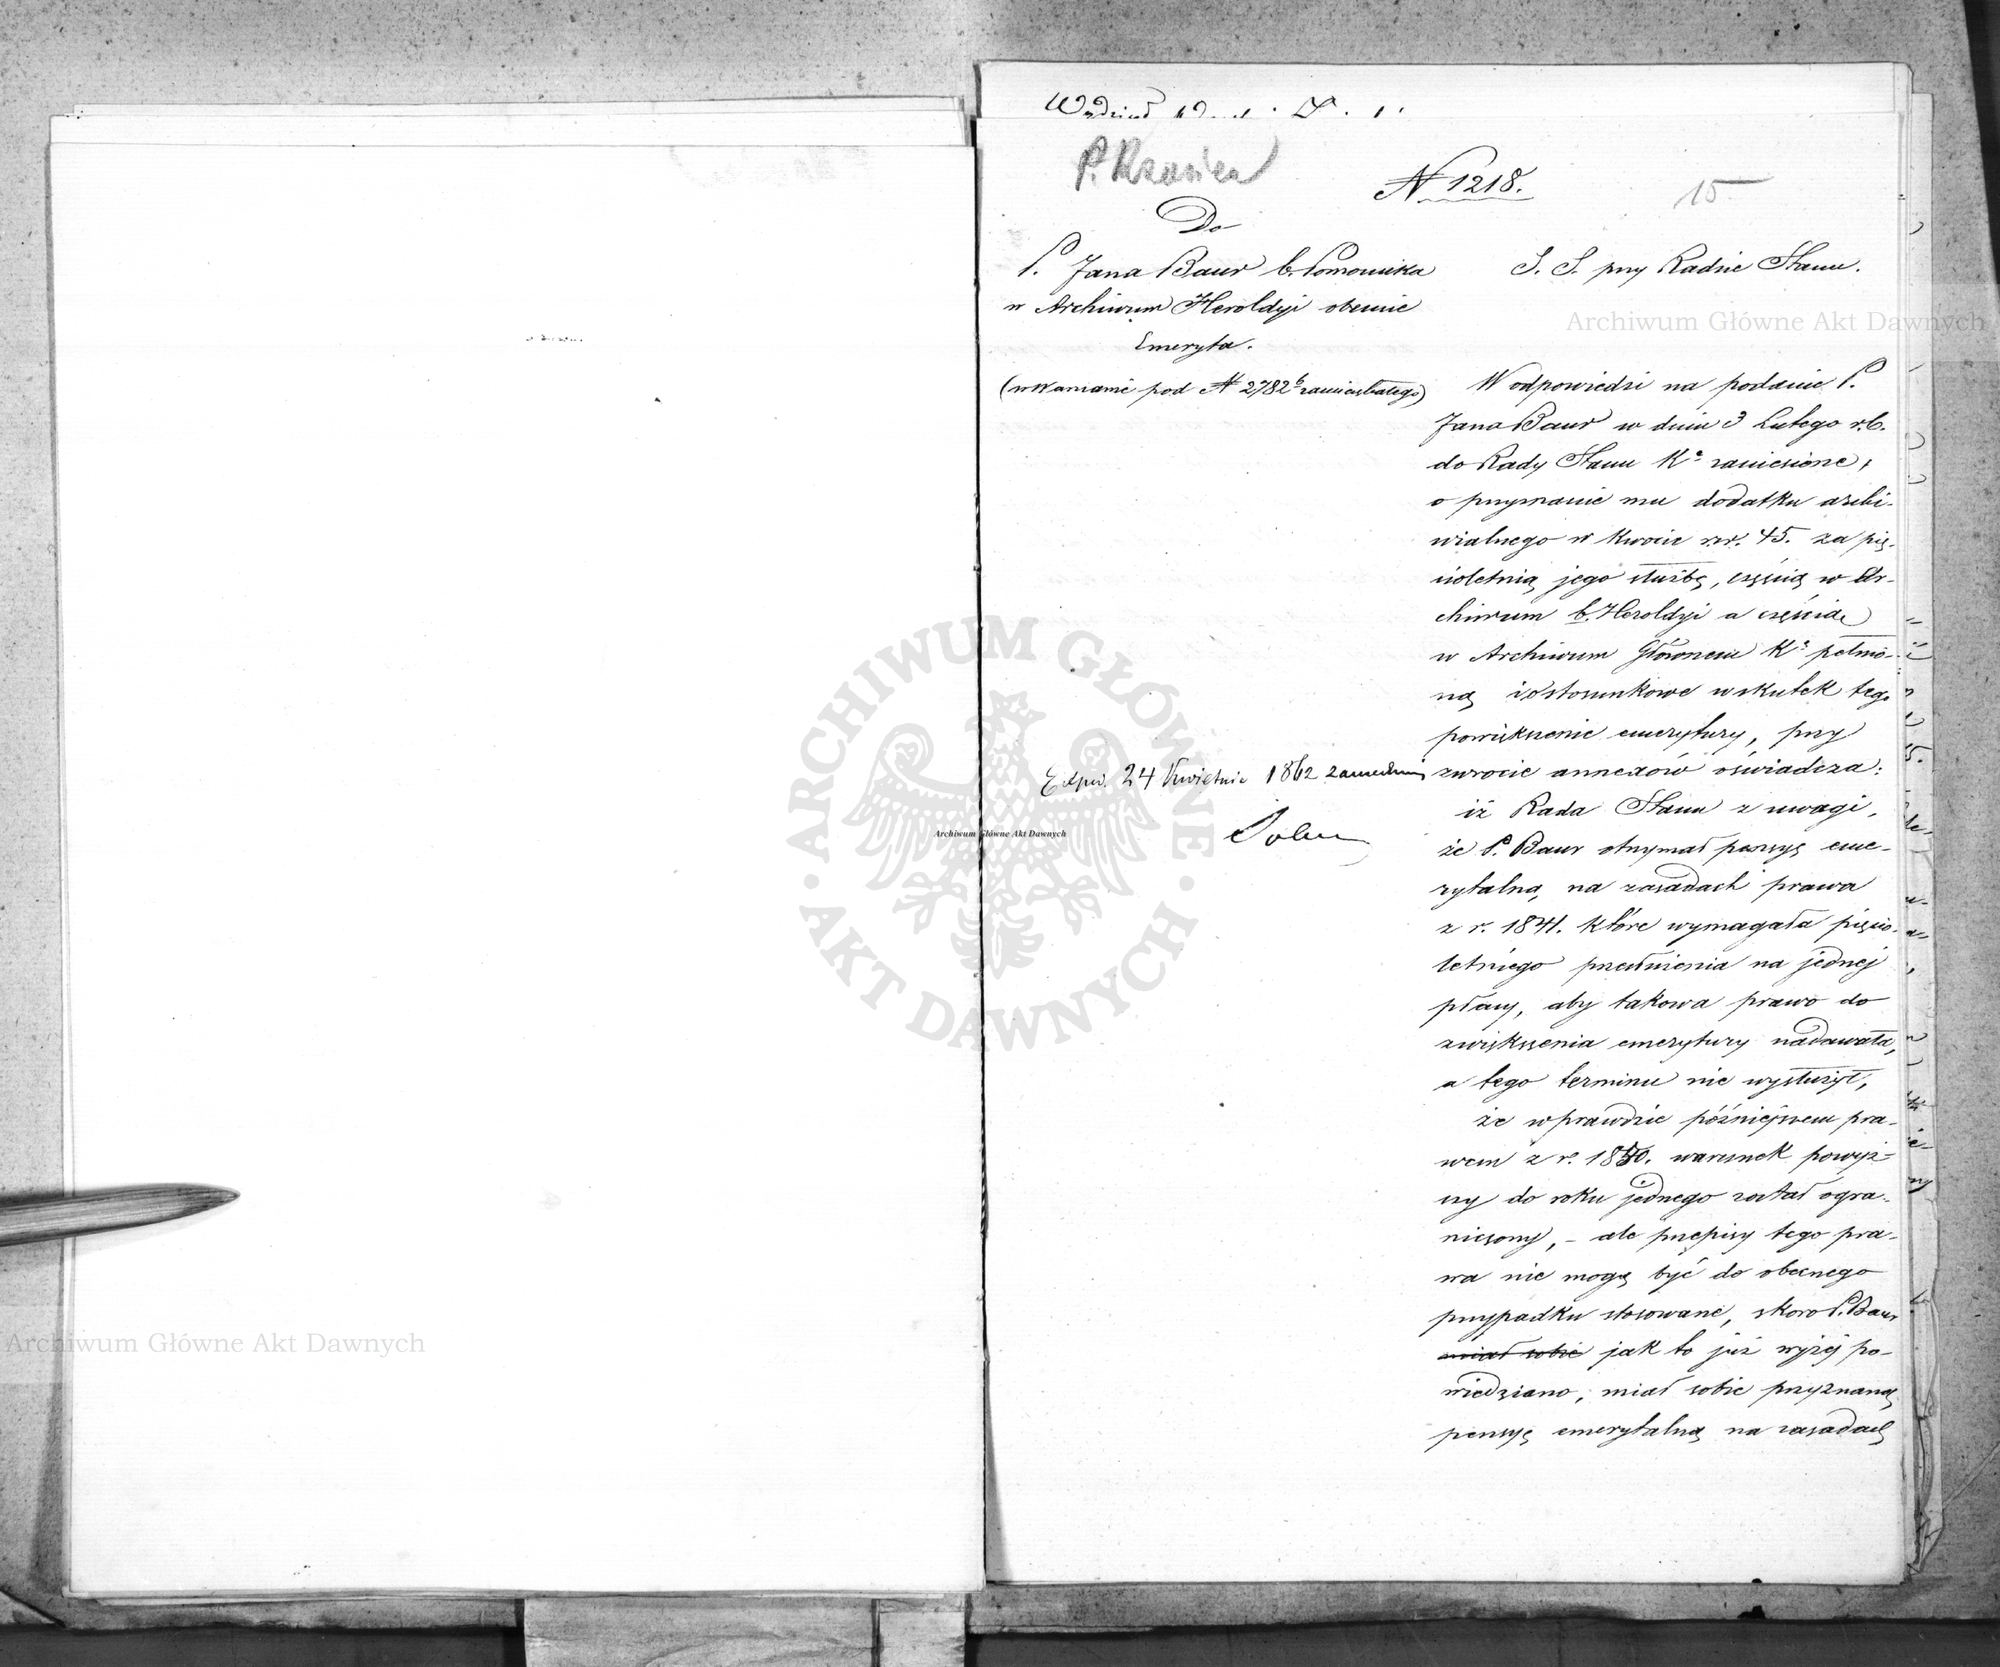 P. Krasicz
N 1218.
15
Do
P. Jana Baur b. Pomocnika
w Archiwum Heroldyi obecnie
Emeryta.
(w Wanianie pod N 2782 b zamieszkałego)
S. S. przy Radzie Stanu.
W odpowiedzi na podanie P.
Jana Baur w dniu 3 Lutego r.b.
do Rady Stanu Ka zaniesione,
o przyznanie mu dodatku archi-
wialnego w kwocie rsr. 45. za pię-
cioletnią jego służbę, częścią w Ar-
chiwum b. Heroldyi a częścią
w Archiwum Głównem Ka pełnio-
ną i stosunkowe wskutek tego
powiększenie emerytury, przy
zwrocie annexów oświadcza:
iż Rada Stanu z uwagi,
że P. Baur otrzymał pensyę eme-
rytalną, na zasadach prawa
z r. 1841. które wymagała pięcio-
letniego przesłużenia na jednej
płacy, aby takowa prawo do
zwiększenia emerytury nadawała,
a tego terminu nie wysłużył,
że wprawdzie późniejszem pra-
wem z r. 1860. warunek powyż-
szy do roku jednego został ogra-
niczony, - ale przepisy tego pra-
wa nie mogą być do obecnego
przypadku stosowane, skoro P. Baur
miał sobie jak to już wyżej po-
wiedziano, miał sobie przyznaną
pensyę emerytalną na zasadach
24 Kwietnia 1862
Archiwum Główne Akt Dawnych
Archiwum Główne Akt Dawnych
Archiwum Główne Akt Dawnych
ARCHIWUM GŁÓWNE
AKT DAWNYCH